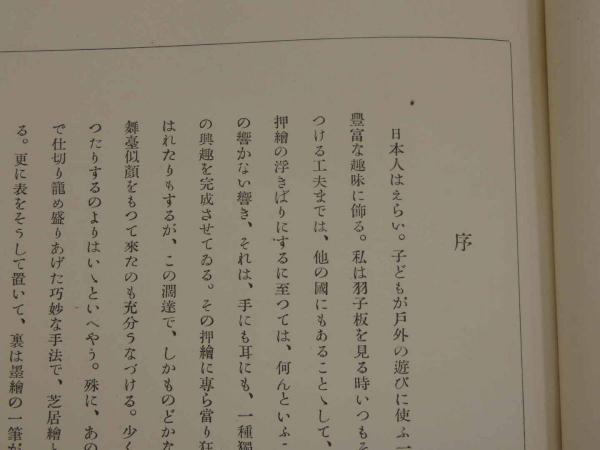 序
日本人はえらい。子どもが戶外の遊びに使ふ一
豐富な趣味に飾る。私は羽子板を見る時いつもそ
つける工夫までは、他の國にもあることゝして、
押繪の浮きばりにするに至つては、何んといふこ
の響かない響き、それは、手にも耳にも、一種獨
の興趣を完成させてゐる。その押繪に專ら當り狂
はれたりもするが、この濶達で、しかものどかな
舞臺似顏をもつて來たのも充分うなづける。少く
つたりするのよりはいゝといへやう。殊に、あの
で仕切り籠め盛りあげた巧妙な手法で、芝居繪と
る。更に表をそうして置いて、裏は墨繪の一筆が